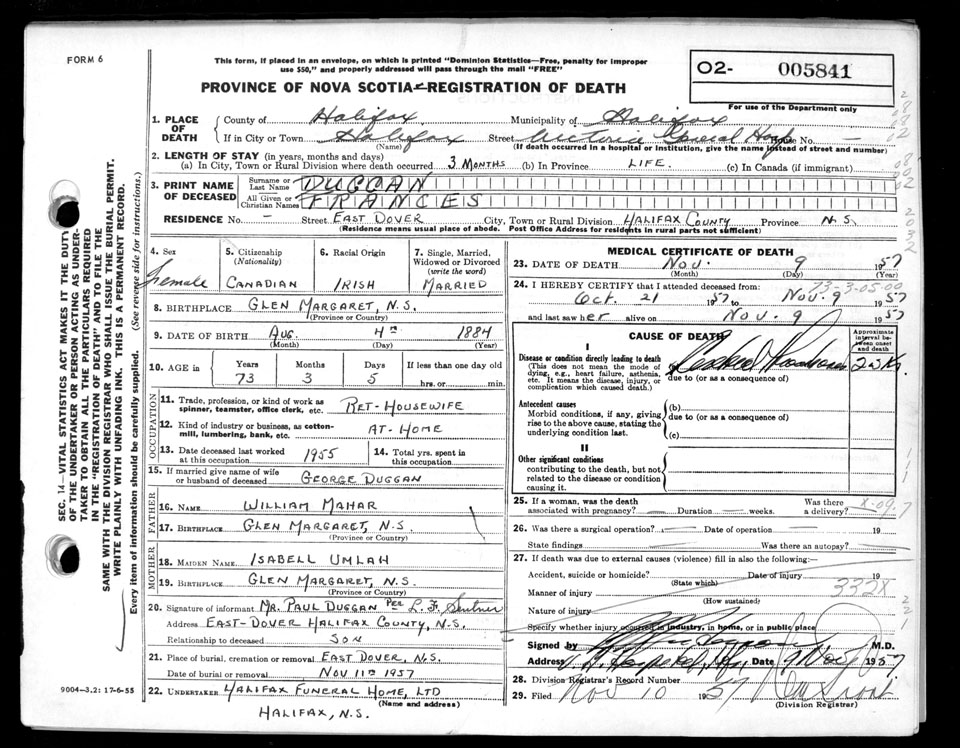 FORM 6
This form, if placed in an envelope, on which is printed "Dominion Statistics—Free, penalty for improper
use $50," and properly addressed will pass through the mail "FREE"
O2- 005841
PROVINCE OF NOVA SCOTIA—REGISTRATION OF DEATH
For use of the Department only
1. PLACE OF DEATH
County of Halifax Municipality of Halifax
If in City or Town Halifax Street Victoria General Hosp House No. —
(Name) (If death occurred in a hospital or institution, give the name instead of street and number)
2. LENGTH OF STAY (in years, months and days)
(a) In City, Town or Rural Division where death occurred 3 MONTHS (b) In Province LIFE. (c) In Canada (if immigrant)
3. PRINT NAME OF DECEASED
Surname or Last Name DUGGAN
All Given or Christian Names FRANCES
RESIDENCE No. — Street EAST DOVER City, Town or Rural Division HALIFAX COUNTY Province N.S.
(Residence means usual place of abode. Post Office Address for residents in rural parts not sufficient)
4. Sex Female
5. Citizenship (Nationality) CANADIAN
6. Racial Origin IRISH
7. Single, Married, Widowed or Divorced (write the word) MARRIED
8. BIRTHPLACE GLEN MARGARET, N.S.
(Province or Country)
9. DATE OF BIRTH AUG. 4TH 1884
(Month) (Day) (Year)
10. AGE in Years Months Days If less than one day old
73 3 5 hrs. or min.
OCCUPATION
11. Trade, profession, or kind of work as
spinner, teamster, office clerk, etc. RET-HOUSEWIFE
12. Kind of industry or business, as cotton-
mill, lumbering, bank, etc. AT-HOME
13. Date deceased last worked
at this occupation 1955
14. Total yrs. spent in
this occupation
15. If married give name of wife
or husband of deceased GEORGE DUGGAN
FATHER
16. NAME WILLIAM MAHAR
17. BIRTHPLACE GLEN MARGARET, N.S.
(Province or Country)
MOTHER
18. MAIDEN NAME ISABELL UMLAH
19. BIRTHPLACE GLEN MARGARET, N.S.
(Province or Country)
20. Signature of informant MR. PAUL DUGGAN PER L. F.
Address EAST-DOVER HALIFAX COUNTY, N.S.
Relationship to deceased SON
21. Place of burial, cremation or removal EAST DOVER, N.S.
Date of burial or removal NOV 11TH 1957
22. UNDERTAKER HALIFAX FUNERAL HOME, LTD
(Name and address)
HALIFAX, N.S.
MEDICAL CERTIFICATE OF DEATH
23. DATE OF DEATH Nov. 9 1957
(Month) (Day) (Year)
73-3-05-00
24. I HEREBY CERTIFY that I attended deceased from:
Oct. 21 1957 to Nov. 9 1957
and last saw her alive on Nov. 9 1957
CAUSE OF DEATH
Approximate interval between onset and death
I
Disease or condition directly leading to death
(This does not mean the mode of
dying, e.g., heart failure, asthenia,
etc. It means the disease, injury, or
complication which caused death.)
due to (or as a consequence of)
Antecedent causes
Morbid conditions, if any, giving
rise to the above cause, stating the
underlying condition last.
(b)
due to (or as a consequence of)
(c)
II
Other significant conditions
contributing to the death, but not
related to the disease or condition
causing it.
25. If a woman, was the death
associated with pregnancy? — Duration weeks.
Was there
a delivery? X-09.
26. Was there a surgical operation? — Date of operation — 19
State findings Was there an autopsy?
27. If death was due to external causes (violence) fill in also the following:—
Accident, suicide or homicide? Date of injury 19
(State which)
Manner of injury 332X
(How sustained)
Nature of injury
Specify whether injury occurred in industry, in home, or in public place
Signed by M.D.
Address Date 9 Nov 1957
28. Division Registrar's Record Number
29. Filed Nov 10 1957
(Division Registrar)
SEC. 14—VITAL STATISTICS ACT MAKES IT THE DUTY
OF THE UNDERTAKER OR PERSON ACTING AS UNDER-
TAKER TO OBTAIN ALL THE PARTICULARS REQUIRED
IN THE "REGISTRATION OF DEATH" AND TO FILE THE
SAME WITH THE DIVISION REGISTRAR WHO SHALL ISSUE THE BURIAL PERMIT.
WRITE PLAINLY WITH UNFADING INK. THIS IS A PERMANENT RECORD.
Every item of information should be carefully supplied. (See reverse side for instructions.)
9004—3.2: 17-6-55